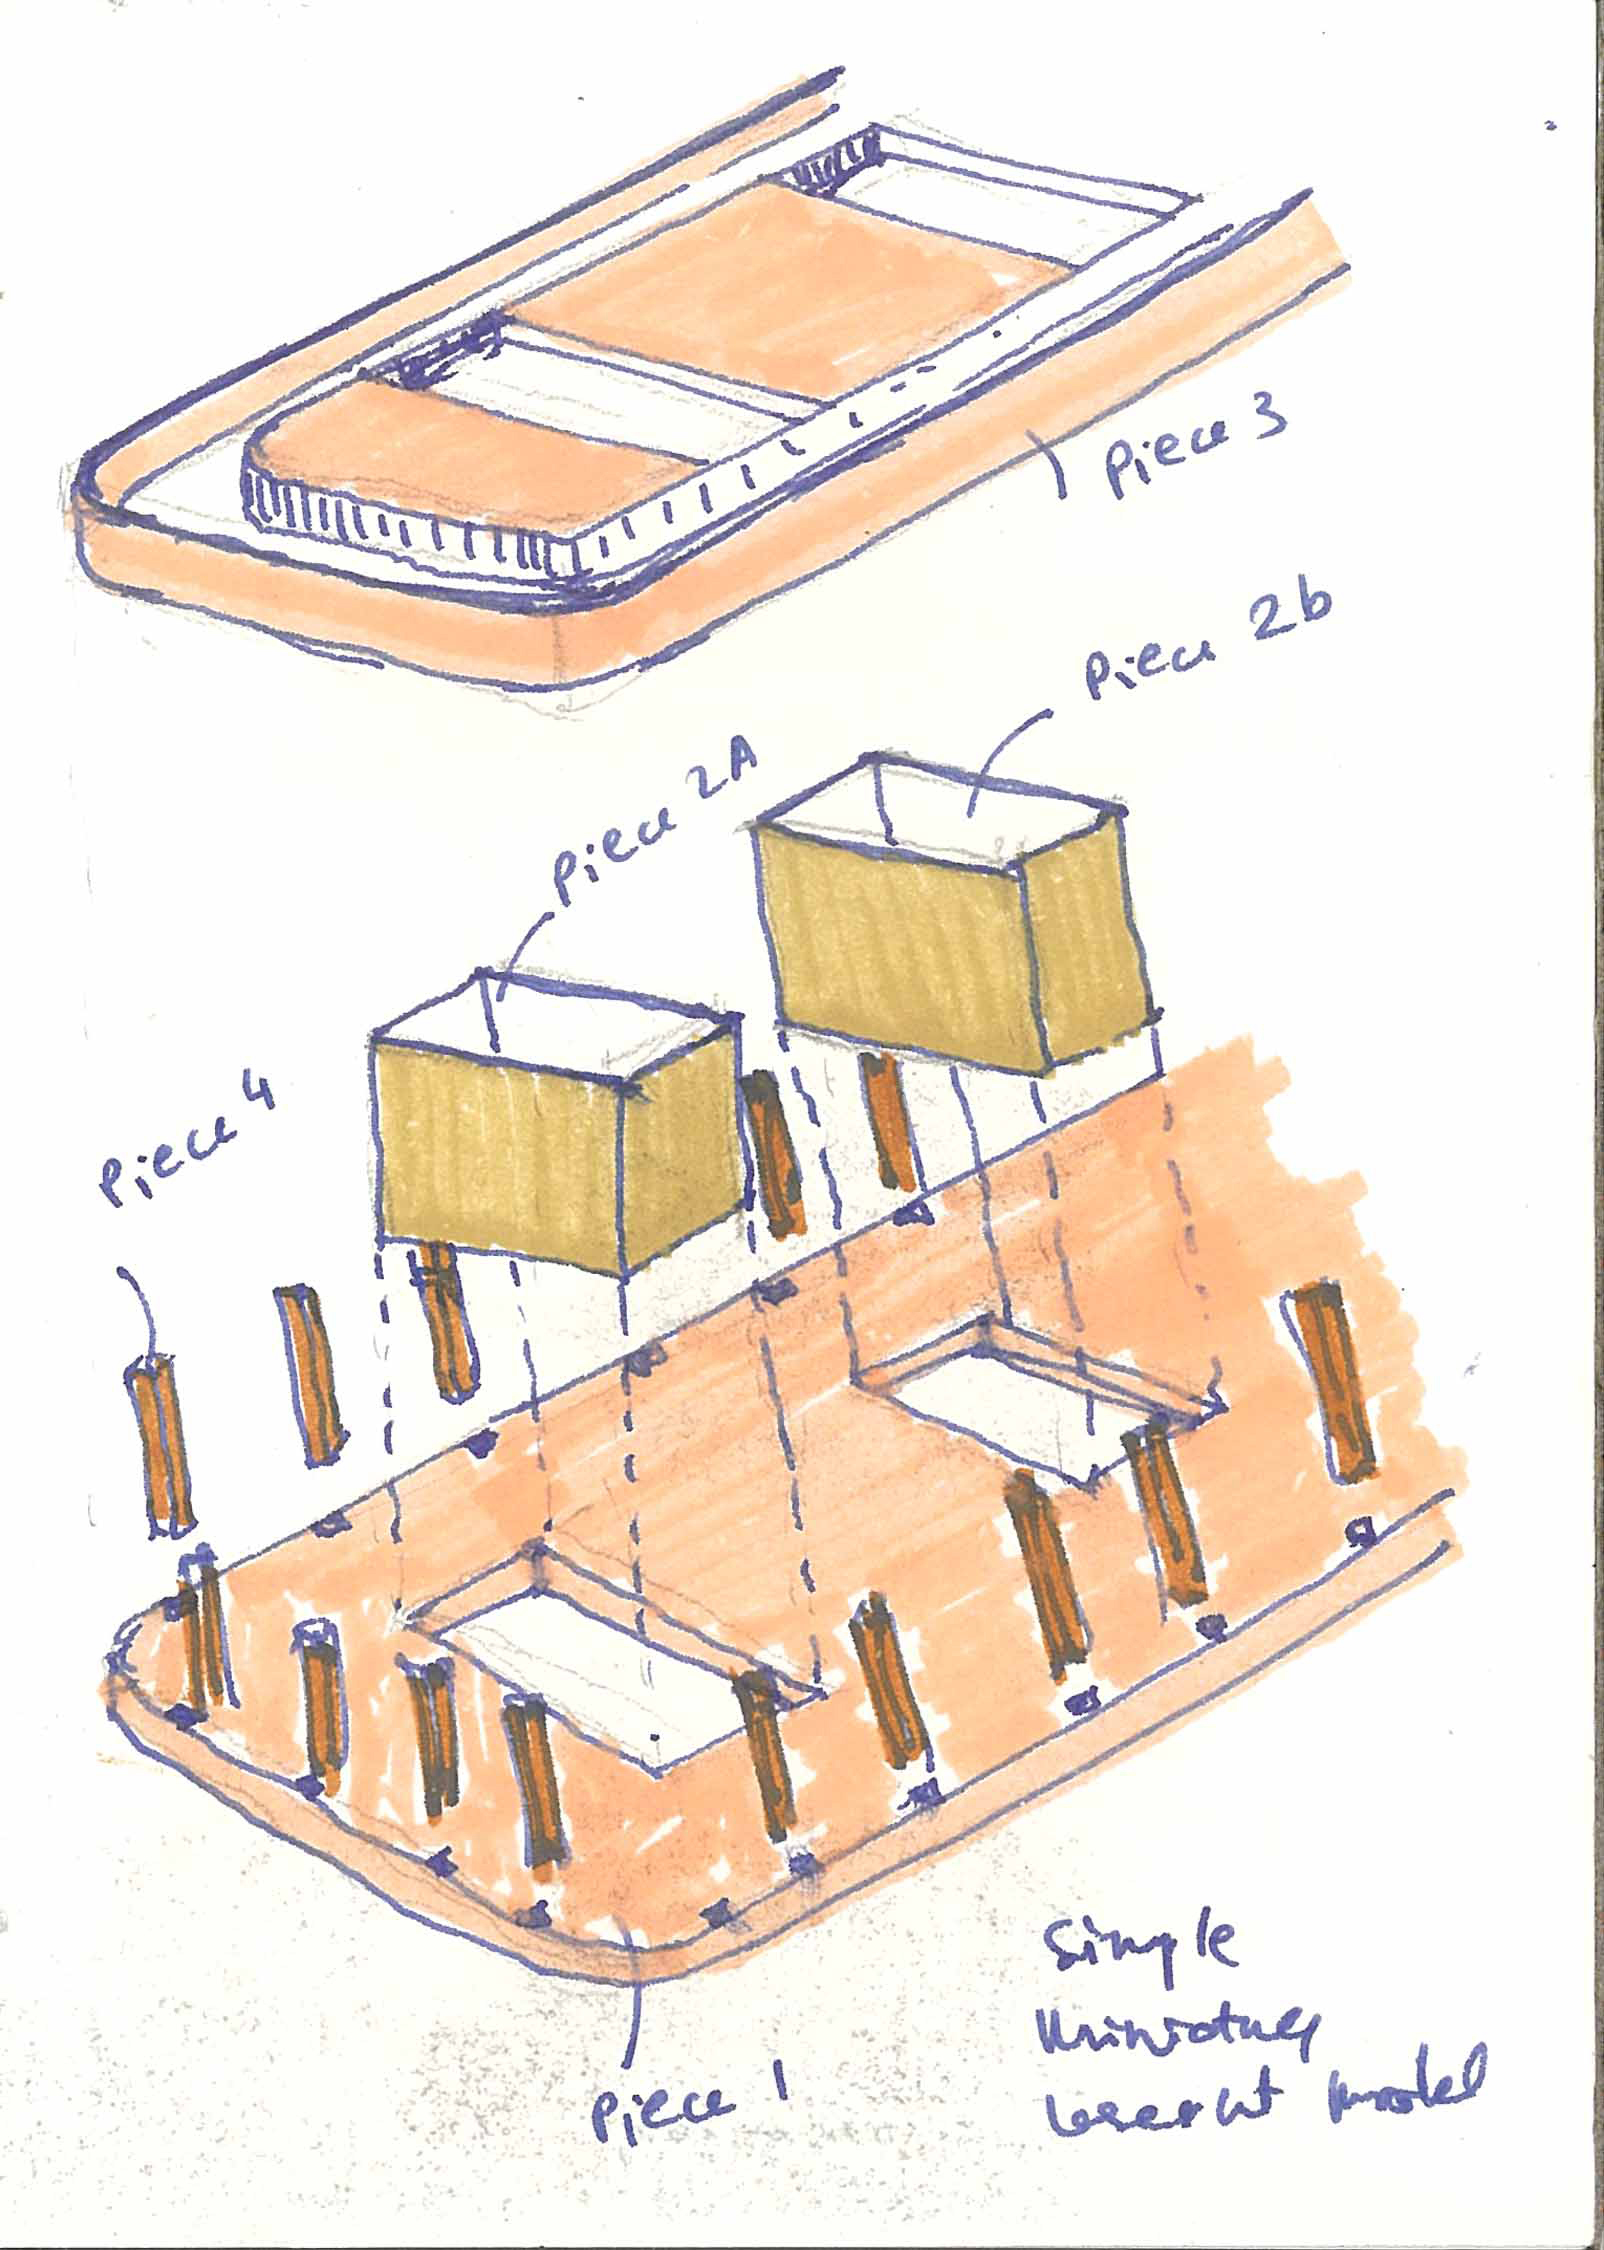 Piece 3
Piece 2b
Piece 2A
Piece 4
Piece 1
Simple
Miniature
lasercut model